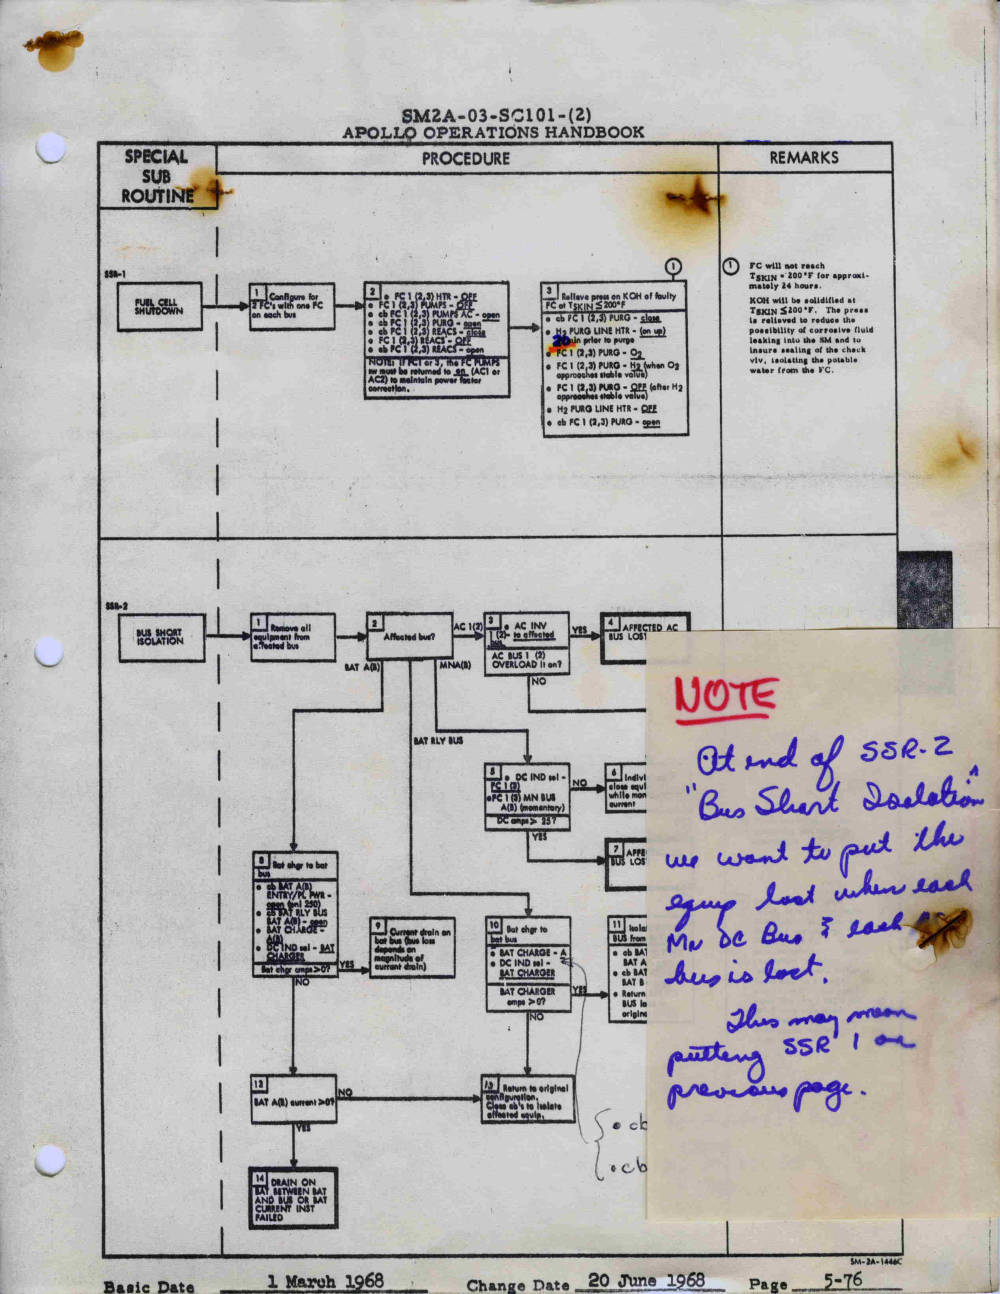 SM2A-03-SC101-(2)
APOLLO OPERATIONS HANDBOOK
SPECIAL
SUB
ROUTINE
PROCEDURE
REMARKS
SSR-1
FUEL CELL
SHUTDOWN
1 Configure for
2 FC's with one FC
on each bus
2
• FC 1 (2,3) HTR - OFF
• FC 1 (2,3) PUMPS - OFF
• cb FC 1 (2,3) PUMPS AC - open
• cb FC 1 (2,3) PURG - open
• cb FC 1 (2,3) REACS - close
• FC 1(2,3) REACS - OFF
• cb FC 1 (2,3) REACS - open
NOTE: If FC1 or 3, the FC PUMPS
sw must be returned to on (AC1 or
AC2) to maintain power factor
correction.
1
3 Relieve press on KOH of faulty
FC at TSKIN ≤200°F
• cb FC 1 (2,3) PURG - close
• H2 PURG LINE HTR - (on up)
20 min prior to purge
• FC 1 (2,3) PURG - O2
• FC 1 (2,3) PURG - H2 (when O2
approaches stable value)
• FC 1 (2,3) PURG - OFF (after H2
approaches stable value)
• H2 PURG LINE HTR - OFF
• cb FC 1 (2,3) PURG - open
1 FC will not reach
TSKIN = 200°F for approxi-
mately 24 hours.
KOH will be solidified at
TSKIN ≤200°F. The press
is relieved to reduce the
possibility of corrosive fluid
leaking into the SM and to
insure sealing of the check
vlv, isolating the potable
water from the FC.
SSR-2
BUS SHORT
ISOLATION
1 Remove all
equipment from
affected bus
2
Affected bus?
AC 1(2)
3 • AC INV
1 (2)- to affected
bus
AC BUS 1 (2)
OVERLOAD lt on?
YES
4 AFFECTED AC
BUS LOST
BAT A(B)
MNA(B)
NO
BAT RLY BUS
5 • DC IND sel -
FC 1 (3)
•FC 1 (3) MN BUS
A(B) (momentary)
DC amps > 25?
NO
YES
6 Indivi
close equi
while mon
current
7 AFFE
BUS LOS
8 Bat chgr to bat
bus
• cb BAT A(B)
ENTRY/PL PWR -
open (pnl 250)
• cb BAT RLY BUS
BAT A(B) - open
• BAT CHARGE -
A(B)
• DC IND sel - BAT
CHARGER
Bat chgr amps >0?
YES
NO
9 Current drain on
bat bus (bus loss
depends on
magnitude of
current drain)
10 Bat chgr to
bat bus
• BAT CHARGE - A
• DC IND sel -
BAT CHARGER
BAT CHARGER
amps >0?
YES
NO
11 Isola
BUS from
• cb BAT
BAT A
• cb BAT
BAT B
• Return
BUS lo
origina
12
BAT A(B) current >0?
NO
YES
13 Return to original
configuration.
Close cb's to isolate
affected equip.
• cb
• cb
14 DRAIN ON
BAT BETWEEN BAT
AND BUS OR BAT
CURRENT INST
FAILED
NOTE
At end of SSR-2
"Bus Short Isolation"
we want to put the
equip lost when each
Mn DC Bus & each
bus is lost.
This may mean
putting SSR 1 on
previous page.
SM-2A-1446C
Basic Date 1 March 1968 Change Date 20 June 1968 Page 5-76